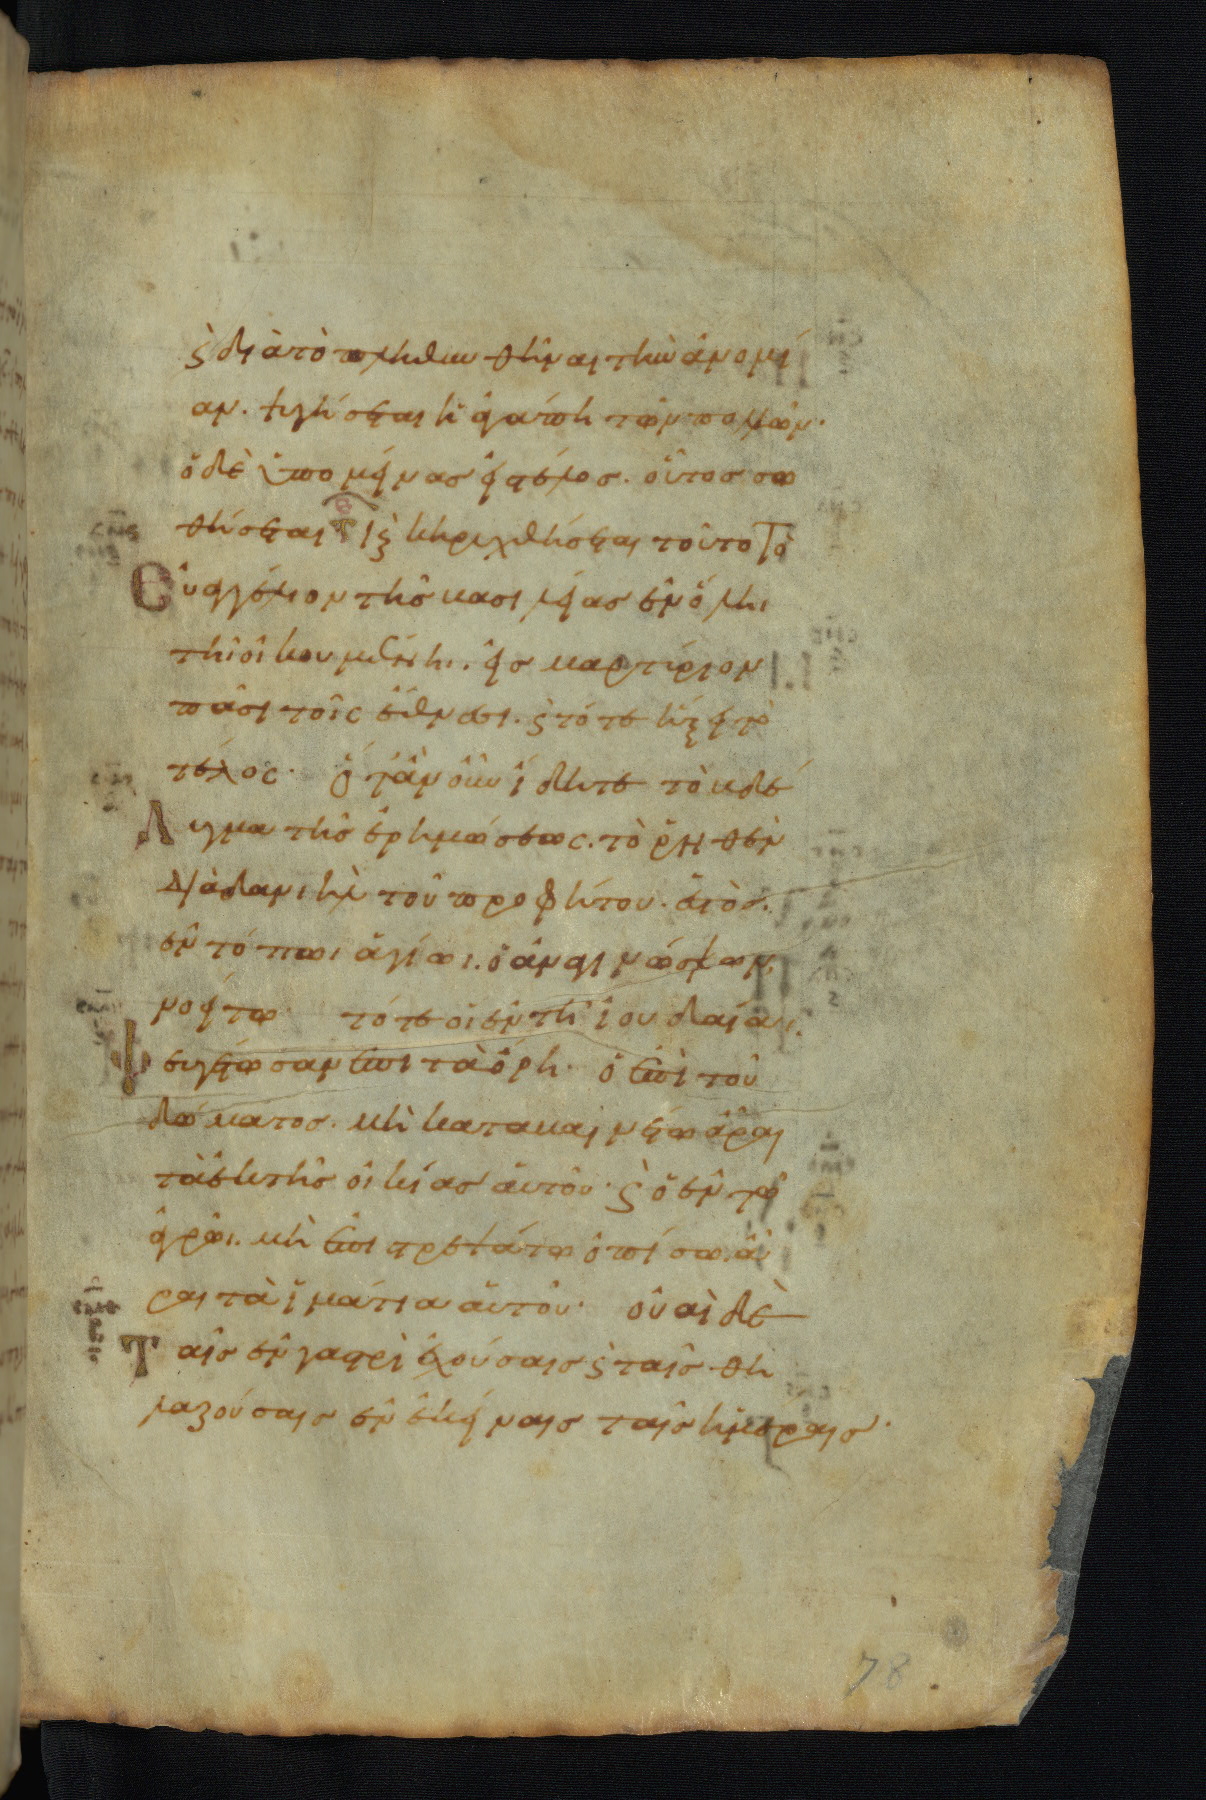 ϛ διὰ τὸ πληθυνθῆναι τὴν ἀνομί
αν. ψυγήσεται ἡ ἀγάπη τῶν πολλῶν·
ὁ δὲ ὑπομείνας εἰς τέλος. οὗτος σω
θήσεται ϛ κηρυχθήσεται τοῦτο τὸ
Εὐαγγέλιον τῆς βασιλείας ἐν ὅλῃ
τῆι οἰκουμένηι. εἰς μαρτύριον
πᾶσι τοῖς ἔθνεσι. ϛ τότε ἥξει τὸ
τέλος· ὅταν οὖν ἴδητε τὸ βδέ
Λυγμα τῆς ἐρημώσεως. τὸ ῥηθὲν
διὰ δανιὴλ τοῦ προφήτου. ἑστὸς.
ἐν τόπωι ἁγίωι. ὁ ἀναγινώσκων
νοείτω· τότε οἱ ἐν τῆ ἰουδαίαι.
Φευγέτωσαν ἐπὶ τὰ ὄρη· ὁ ἐπὶ τοῦ
δώματος. μὴ καταβαινέτω ἆραι
τὰ ἐκ τῆς οἰκίας αὐτοῦ· ϛ ὁ ἐν τῶ
ἀγρῶι. μὴ ἐπιστρεψάτω ὀπίσω. ἆ
ραι τὰ ἱμάτια αὐτοῦ· οὐαὶ δὲ
Ταῖς ἐν γαστρὶ ἐχούσαις ϛ ταῖς θη
λαζούσαις ἐν ἐκείναις ταῖς ἡμέραις·
78